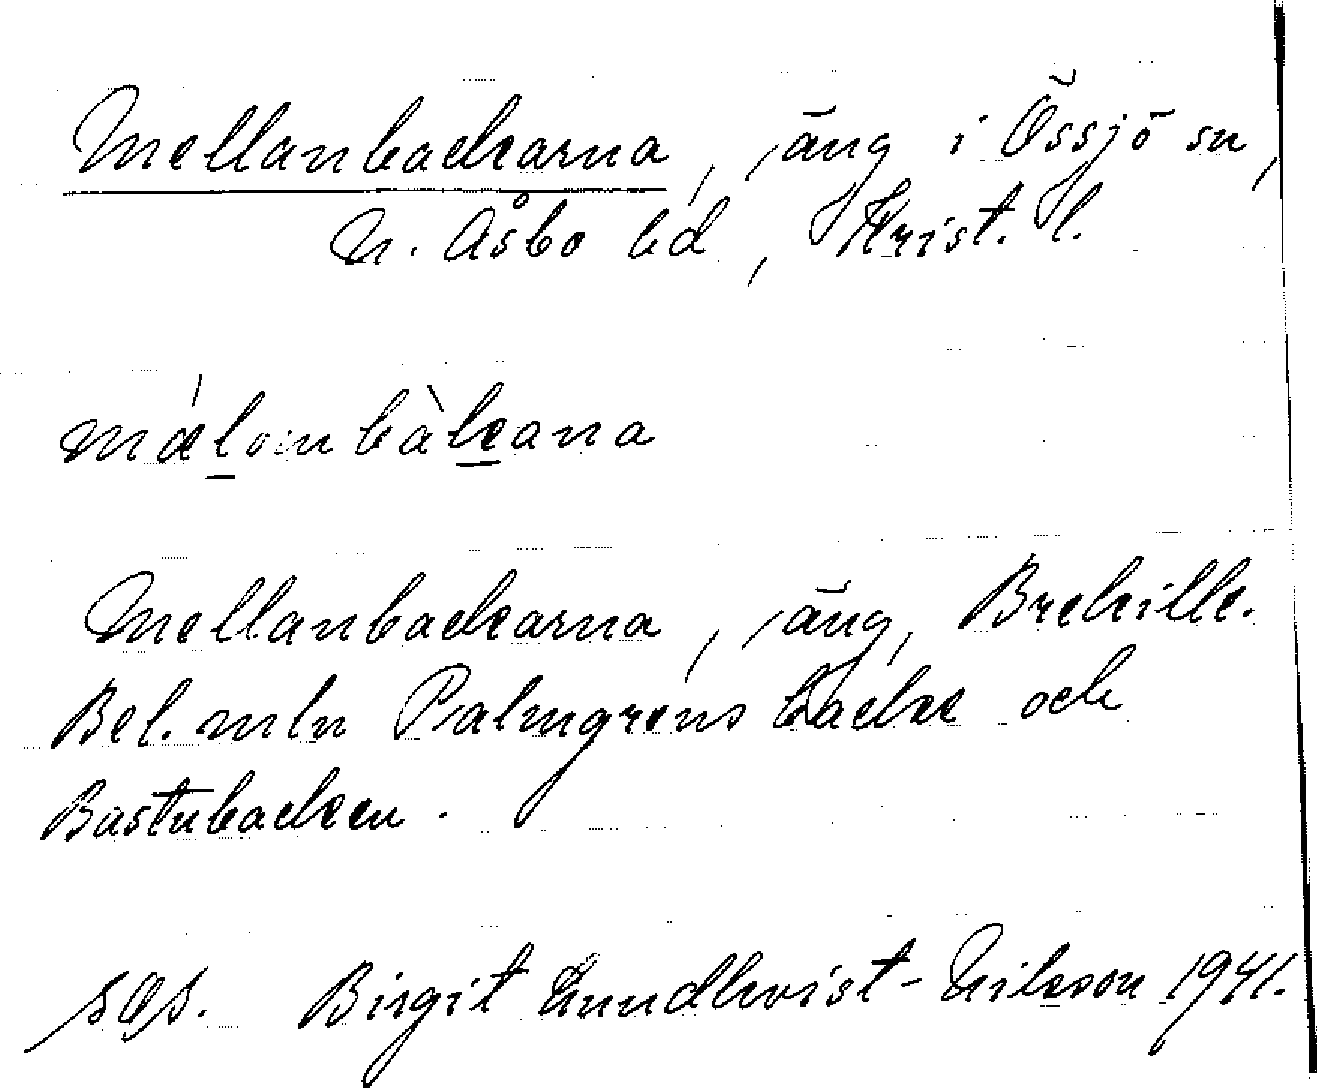 Mellanbackarna, äng i Össjö sn,
N. Åsbo hd, Krist. l.
mǽlombàkana
Mellanbackarna, äng, Brekille.
Bel. mln Palmgrens backe och
Bastubacken.
Birgit Lundkvist-Nilsson 1941.